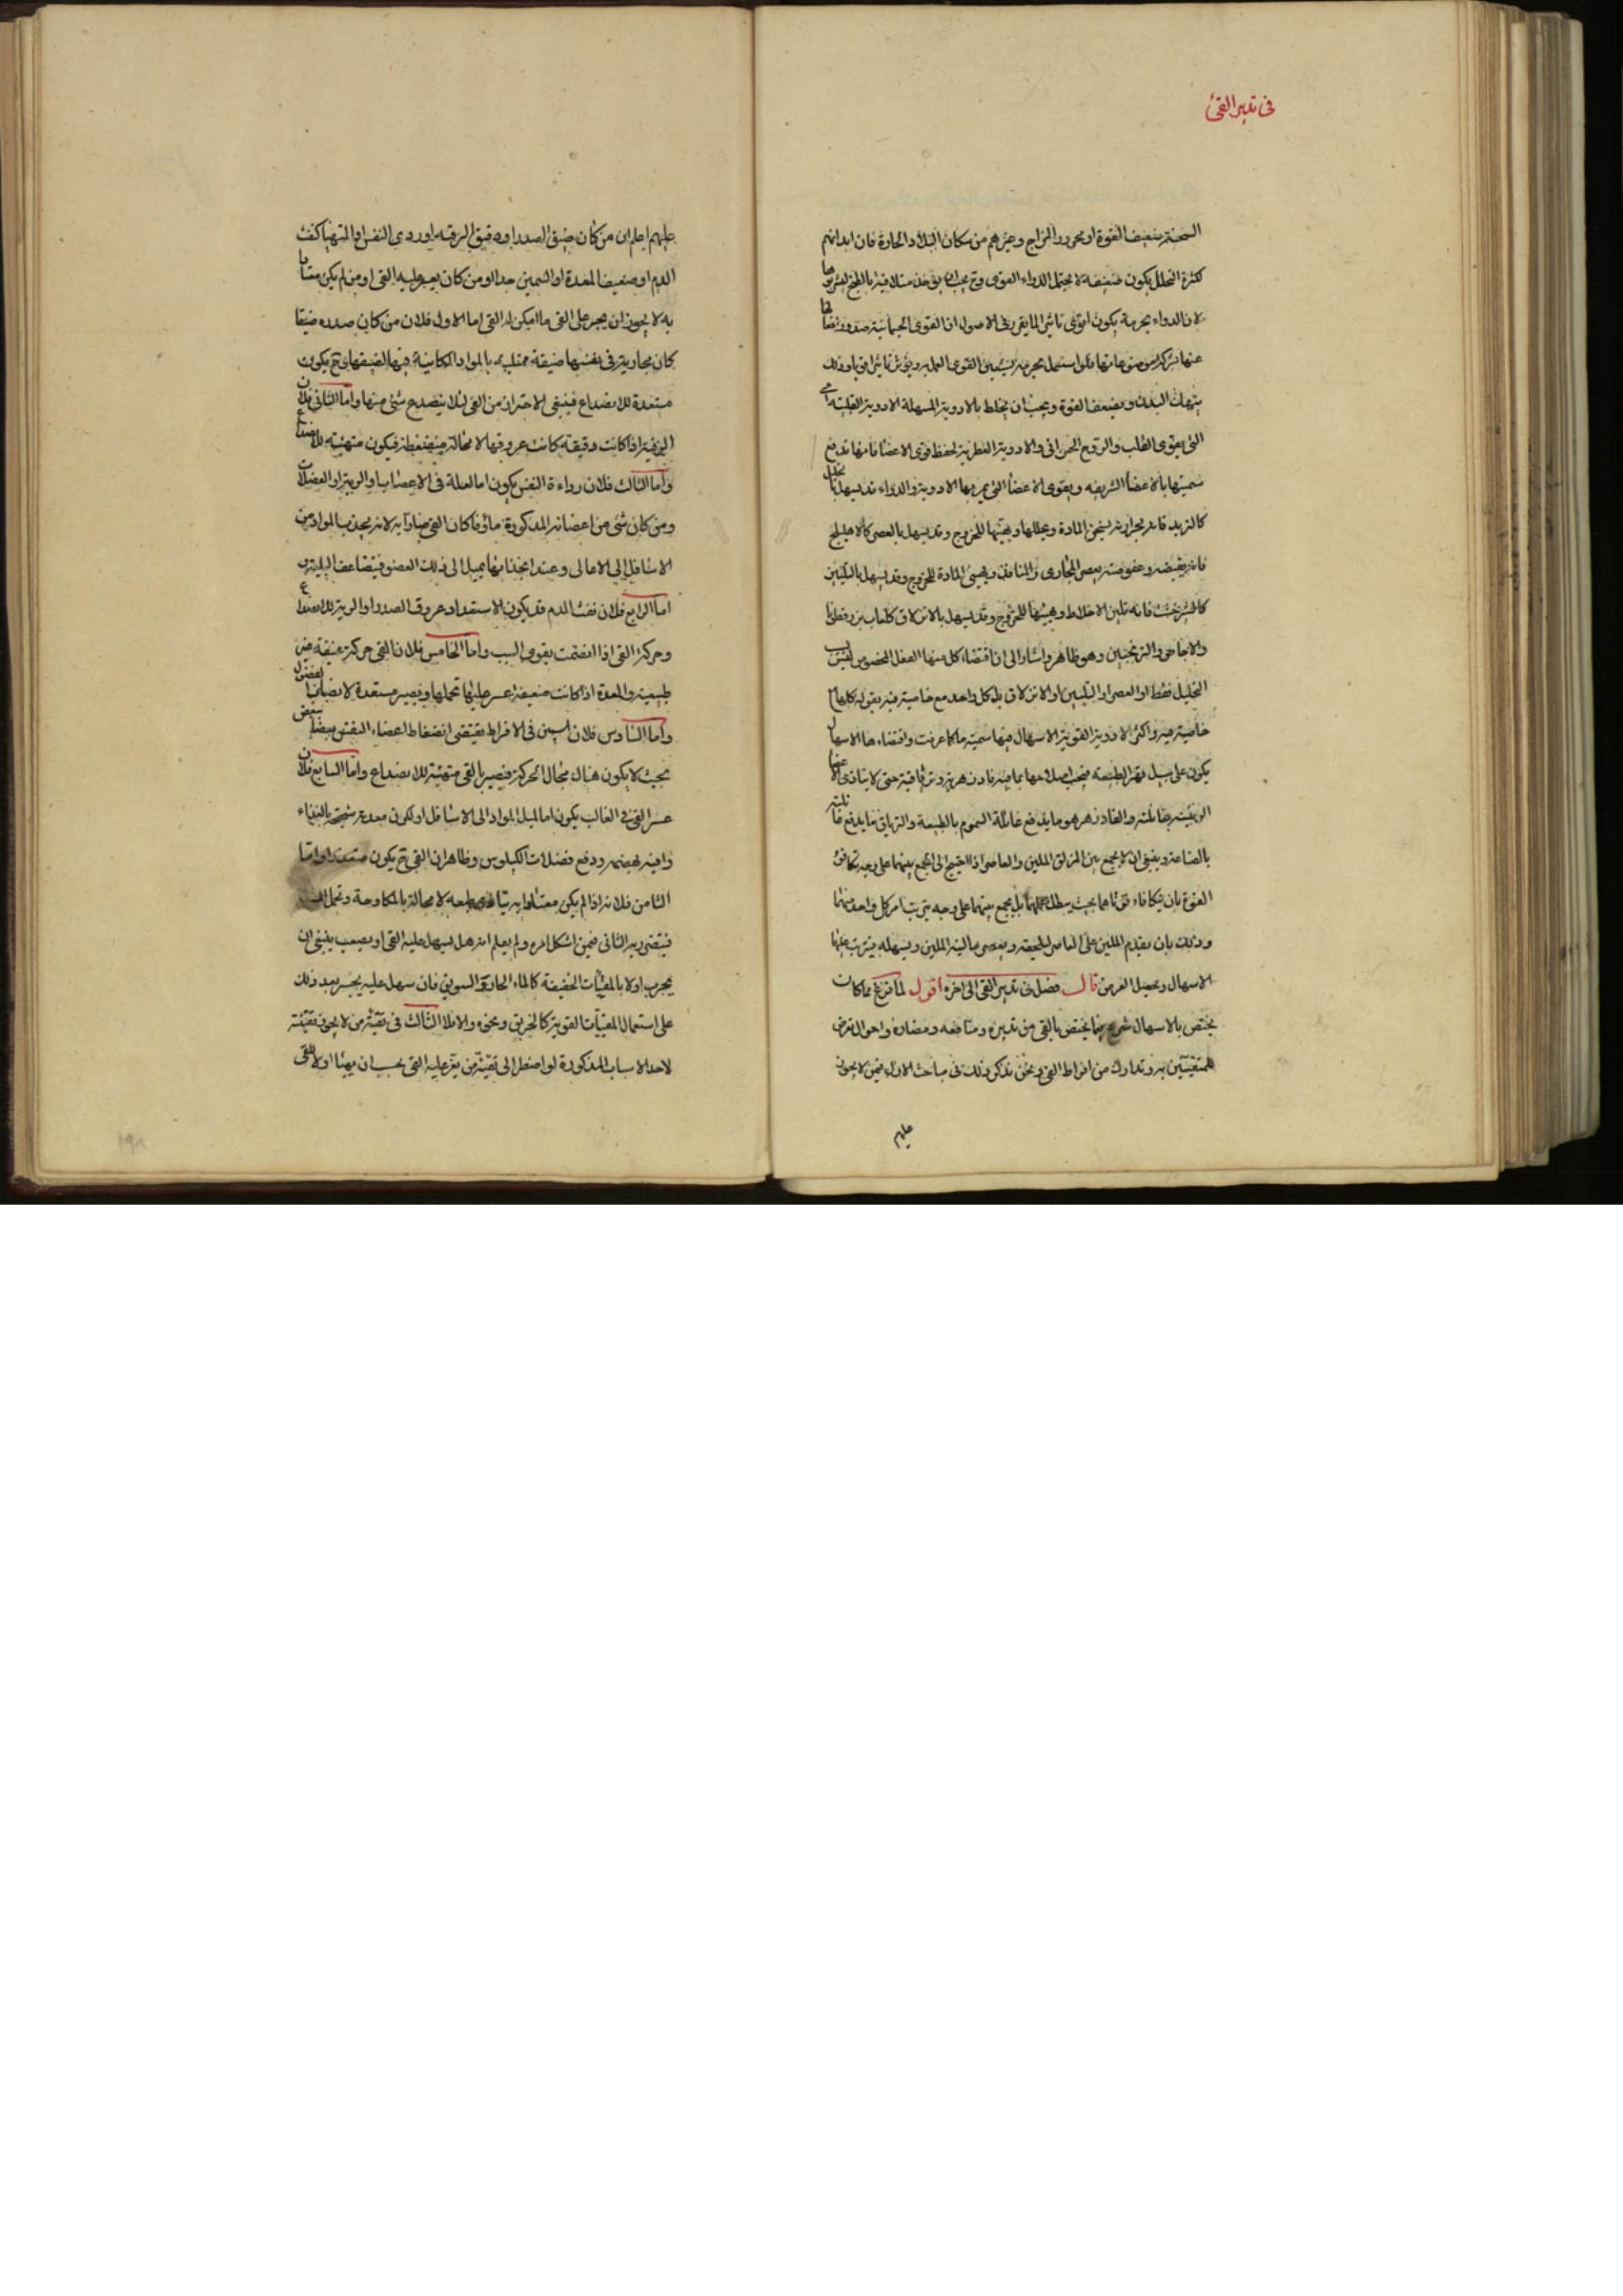 في تدبير القئ
السحنة ضعيف القوة او محرور المزاج وغيرهم من سكان البلاد الحارة فان ابدانهم
كثرة التحلل يكون ضعيفة لا يحتمل الدواء القوى وح يجب ان يؤخذ
لان الدواء بجرمه يكون اقوى تاثيرا لما يقرر في الاصول ان القوى الجسمانية
عنها فلو استعمل بجرمه القوى العليه ويؤثر تاثيرا قويا وذلك
ينهك البدن ويضعف القوة ويجب ان يخلط بالادوية المسهلة الادوية القلبية اى
التى يقوى القلب والروح الحيوانى والادوية العطرية لحفظ قوى الاعضا فانها تدفع
سميتها بالاعضا الشريفه ويقوى الاعضا التى يمر بها الادوية والدواء قد يسهل بالتحليل
كالتربد فانه بحرارته يسخن المادة ويحللها ويهيئها للخروج وقد يسهل بالعصر كالاهليلج
فانه بقبضه وعفوصته يعصر المجارى والمنافذ ويهيئ المادة للخروج وقد يسهل بالتليين
كالشيرخشت فانه تلين الاخلاط ويهيئها للخروج وقد يسهل بالازلاق كلعاب بزرقطونا
والاجاص والترنجبين وهو ظاهر واشار الى ان اقتضاء كل منها الفعل المخصوص ليس
التحليل فقط او العصر او التليين او الازلاق بل كل واحد مع خاصية فيه بقوله
خاصية فيه واكثر الادوية القوية الاسهال فيها سمية ما كما عرفت واقتضاءها الاسهال
يكون على سبيل قهر الطبيعه فيجب اصلاحها بما فيه فادزهرية وترياقية حتى لا يتاذى الاعضا
الرئيسة والفادزهر هو ما يدفع غائلة السموم بالطبيعة والترياق ما يدفع
بالصناعة وينبغى ان لا يجمع بين المزلق الملين والعاصر اذا احتيج الى الجمع بينهما على وجه تكافؤ
القوة بان يتكافاء قوتاهما بحيث يبطل عملهما بل يجمع بينهما على وجه يترتب اثر كل واحد منهما
وذلك بان يقدم الملين على العاصر ليلحقه ويعصر ما لينه الملين ويسهله فيترتب عليها
الاسهال ويحصل الغرض قال فصل في تدبير القئ الى اخره اقول لما فرغ مما كان
يختص بالاسهال شرع فيما يختص بالقئ من تدبيره ومنافعه ومضاره واحوال تعرض
للمتقيئين به وتدارك من افراط القئ ونحن نذكر ذلك في مباحث الاول فيمن لا يجوز
عليهم
عليهم اعلم ان من كان ضيق الصدر او دقيق الرقبة او ردى النفس او المتهيا لنفث
الدم او ضعيف المعدة او السمين جدا او من كان يعسر عليه القئ او من لم يكن معتادا
به لا يجوز ان يجبر على القئ ما امكن له القئ اما الاول فلان من كان صدره ضيقا
كان مجاريه في نفسها ضيقة ممتلية بالمواد الكاينة فيها لضيقها وح يكون
مستعدة للانصداع فينبغى الاحتراز من القئ لئلا ينصدع شئ منها واما الثانى فلان
الرقبة اذا كانت دقيقة كانت عروقها لا محالة منضغطة فيكون متهيئة للانصداع
واما الثالث فلان رداءة النفس يكون اما لعلة في الاعصاب او الرية او العضلات
ومن كان شئ من اعضائه المذكورة ماؤفا كان القئ ضارا به لانه يجذب المواد من
الاسافل الى الاعالى وعند انجذابها يميل الى ذلك العضو فيتضاعف البلية و
اما الرابع فلان نفث الدم قد يكون لاستعداد عروق الصدر او الرية للانصداع
وحركة القئ اذا انضمت يقوى السبب واما الخامس فلان القئ حركة عنيفة غير
طبيعية والمعدة اذا كانت ضعيفة عسر عليها تحملها ويصير مستعدة لانصباب الفضول
واما السادس فلان السمن في الافراط يقتضى انضغاط العضاء النفس بعضها ببعض
بحيث لا يكون هناك مجال الحركة فيصير بالقئ متهيئة للانصداع واما السابع فلان
عسر القئ في الغالب يكون اما لميل المواد الى الاسافل او لكون معدته شحيحة بالغذاء
وافية بهضمه ودفع فضلات الكيلوس وظاهر ان القئ ح يكون متعذرا واما
الثامن فلانه اذا لم يكن معتادا به لا محالة بالمكاوحة
فيتضرر به الثانى فيمن اشكل امره ولم يعلم انه هل يسهل عليه القئ او يصعب ينبغى ان
يجرب اولا بالمقيئات الخفيفة كالماء الحار والسويق فان سهل عليه يجسر بعد ذلك
على استعمال المقيئات القوية كالخربق ونحوه والا فلا الثالث في تقيئة من لا يجوز تقيئته
لاحد الاسباب المذكورة لو اضطر الى تقيئة من يعز عليه القئ يجب ان يهيئا اولا للقئ